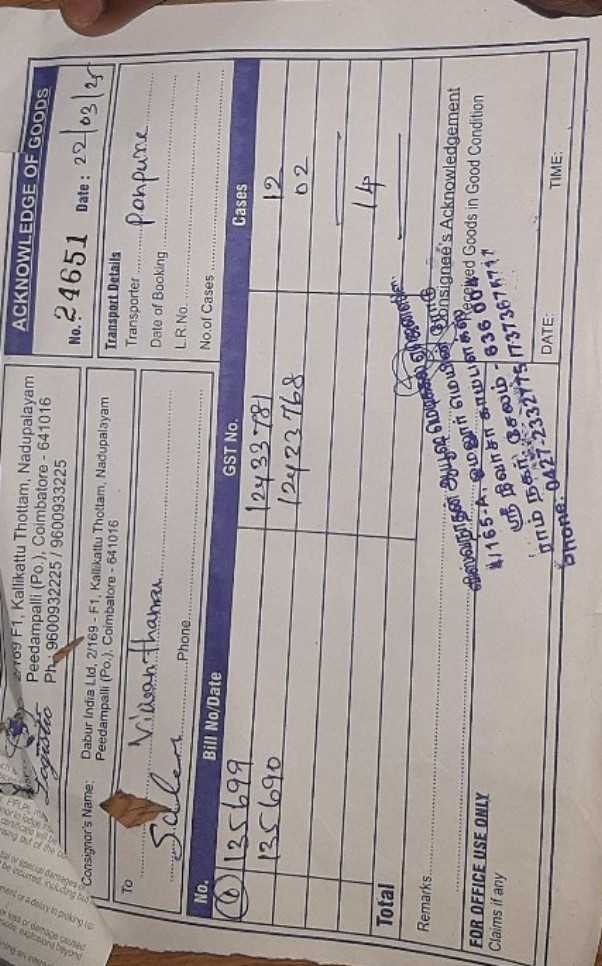 ACKNOWLEDGE OF GOODS
2/169 F1, Kallikattu Thottam, Nadupalayam
Peedampalli (Po.), Coimbatore - 641016
Ph: 9600932225 / 9600933225
Logistic
No.: 24651 Date : 22/03/25
Consignor's Name: Dabur India Ltd, 2/169 - F1, Kallikattu Thottam, Nadupalayam
Peedampalli (Po.), Coimbatore - 641016
To Viswanthaman
Salem
Phone
Transport Details
Transporter Ponpure
Date of Booking
L.R.No.
No.of Cases
No. Bill No/Date GST No. Cases
6 135699 12433781 12
135690 12423768 02
Total 14
Remarks
FOR OFFICE USE ONLY
Claims if any
Consignee's Acknowledgement
Received Goods in Good Condition
விஸ்வநாதன் ஆயுஷ் மெடிக்கல்
4/165-A, ஓமலூர் மெயின் ரோடு
ஸ்ரீ நிவாசா காம்பளக்ஸ்
ராம் நகர், சேலம் - 636 004
Phone: 0427-2332775, 17373675717
DATE: TIME: